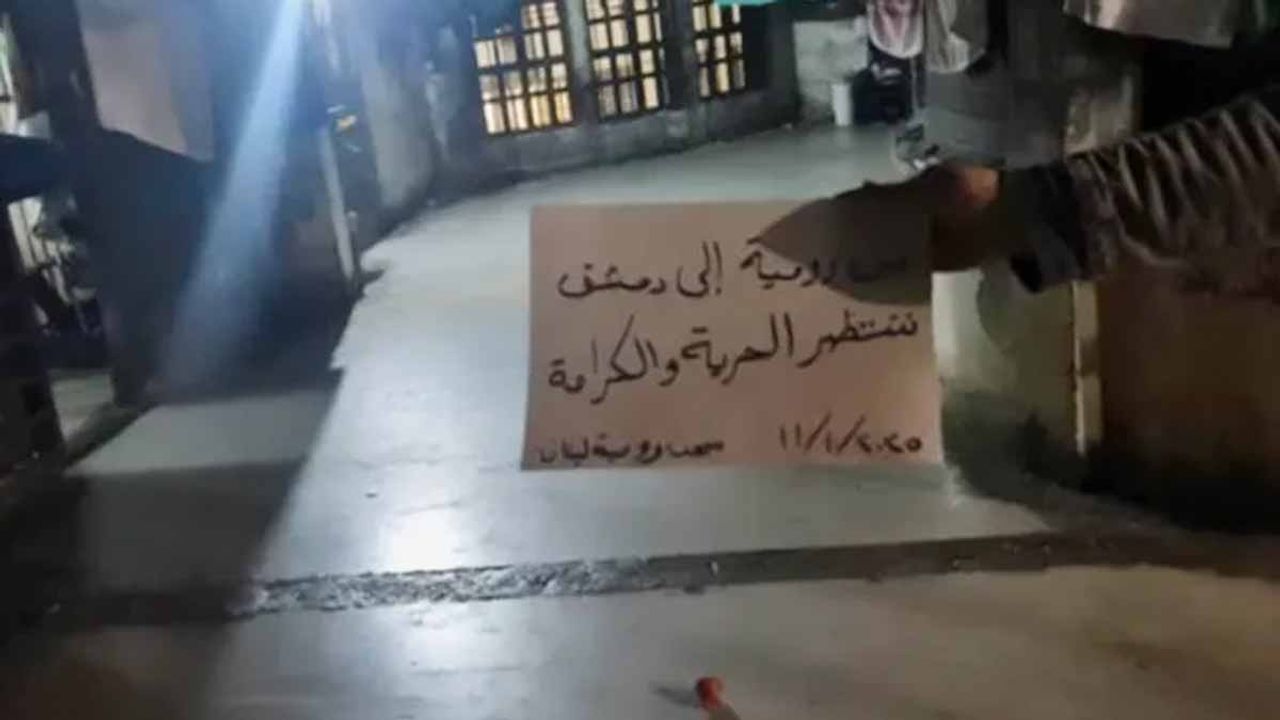 من رومية إلى دمشق
ننتظر الحرية والكرامة
١١/١/٢٠٢٥ سجن رومية لبنان